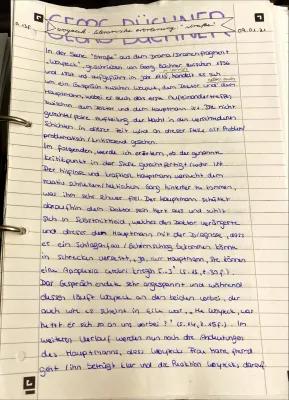 GEORG BÜCHNER
"Woyzeck" literarische Erörterung "Straße"
09.01.21
In der Szene "Straße" aus dem Drama/Dramenfragment
"Woyzeck", geschrieben von Georg Büchner zwischen 1836
und und aufgeführt im Jahr 1913, handelt es sich
um ein Gespräch zwischen Woyzeck, dem Doctor und dem
Hauptmann, wobei es auch das erste Aufeinandertreffen
zwischen dem Doctor und dem Hauptmann ist. Die nicht
gerechte/faire Aufteilung der Macht in den verschiedenen
Schichten in dieser Zeit wird an dieser Stelle als Problem/
problematisch/kritisierend gesehen.
Im folgenden, werde ich erörtern, ob der genannte
Kritikpunkt in der Szene gerechtfertigt ist.
Der Hauptmann versucht dem
relativ schnellen Gang hinterher zu kommen,
was ihm sehr schwer fiel. Der Hauptmann schüttet
daraufhin dem Doctor sein Herz aus und suhlt
sich in Selbstmitleid, welches den Doctor verärgerte
und dieser dem Hauptmann mit der Diagnose, dass
er ein Schlaganfall bekommen könnte
in Schrecken versetzt, "Ja, Herr Hauptmann, Sie können
eine Apoplexia cerebri kriegen [...]" (S. , Z. f.).
Das Gespräch endete sehr angespannt und während
dessen läuft Woyzeck an den beiden vorbei, der
auch wie es scheint in Eile war, "He Woyzeck, was
hetzt er sich so an uns vorbei?" (S. , Z. f.). Im
weiteren Verlauf werden nun noch die Andeutungen
des Hauptmanns, dass Woyzecks Frau Marie fremd
geht/ihn betrügt klar und die Reaktion Woyzecks darauf.